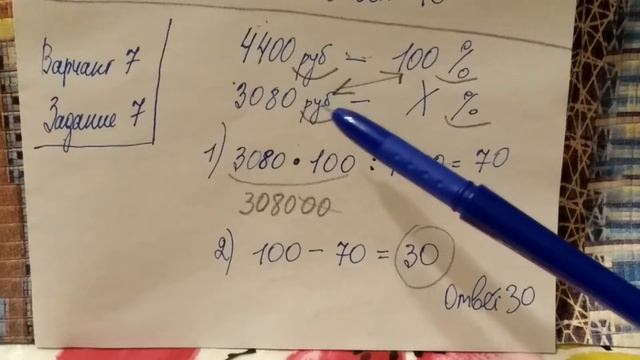 Вариант 7
Задание 7
4400 руб — 100 %
3080 руб — X %
1) 3080 • 100 : = 70
308000
2) 100 - 70 = 30
Ответ 30